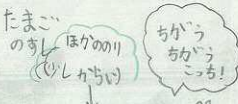 たまご
のすし
ほかののり
ちがう
ちがう
こっち!